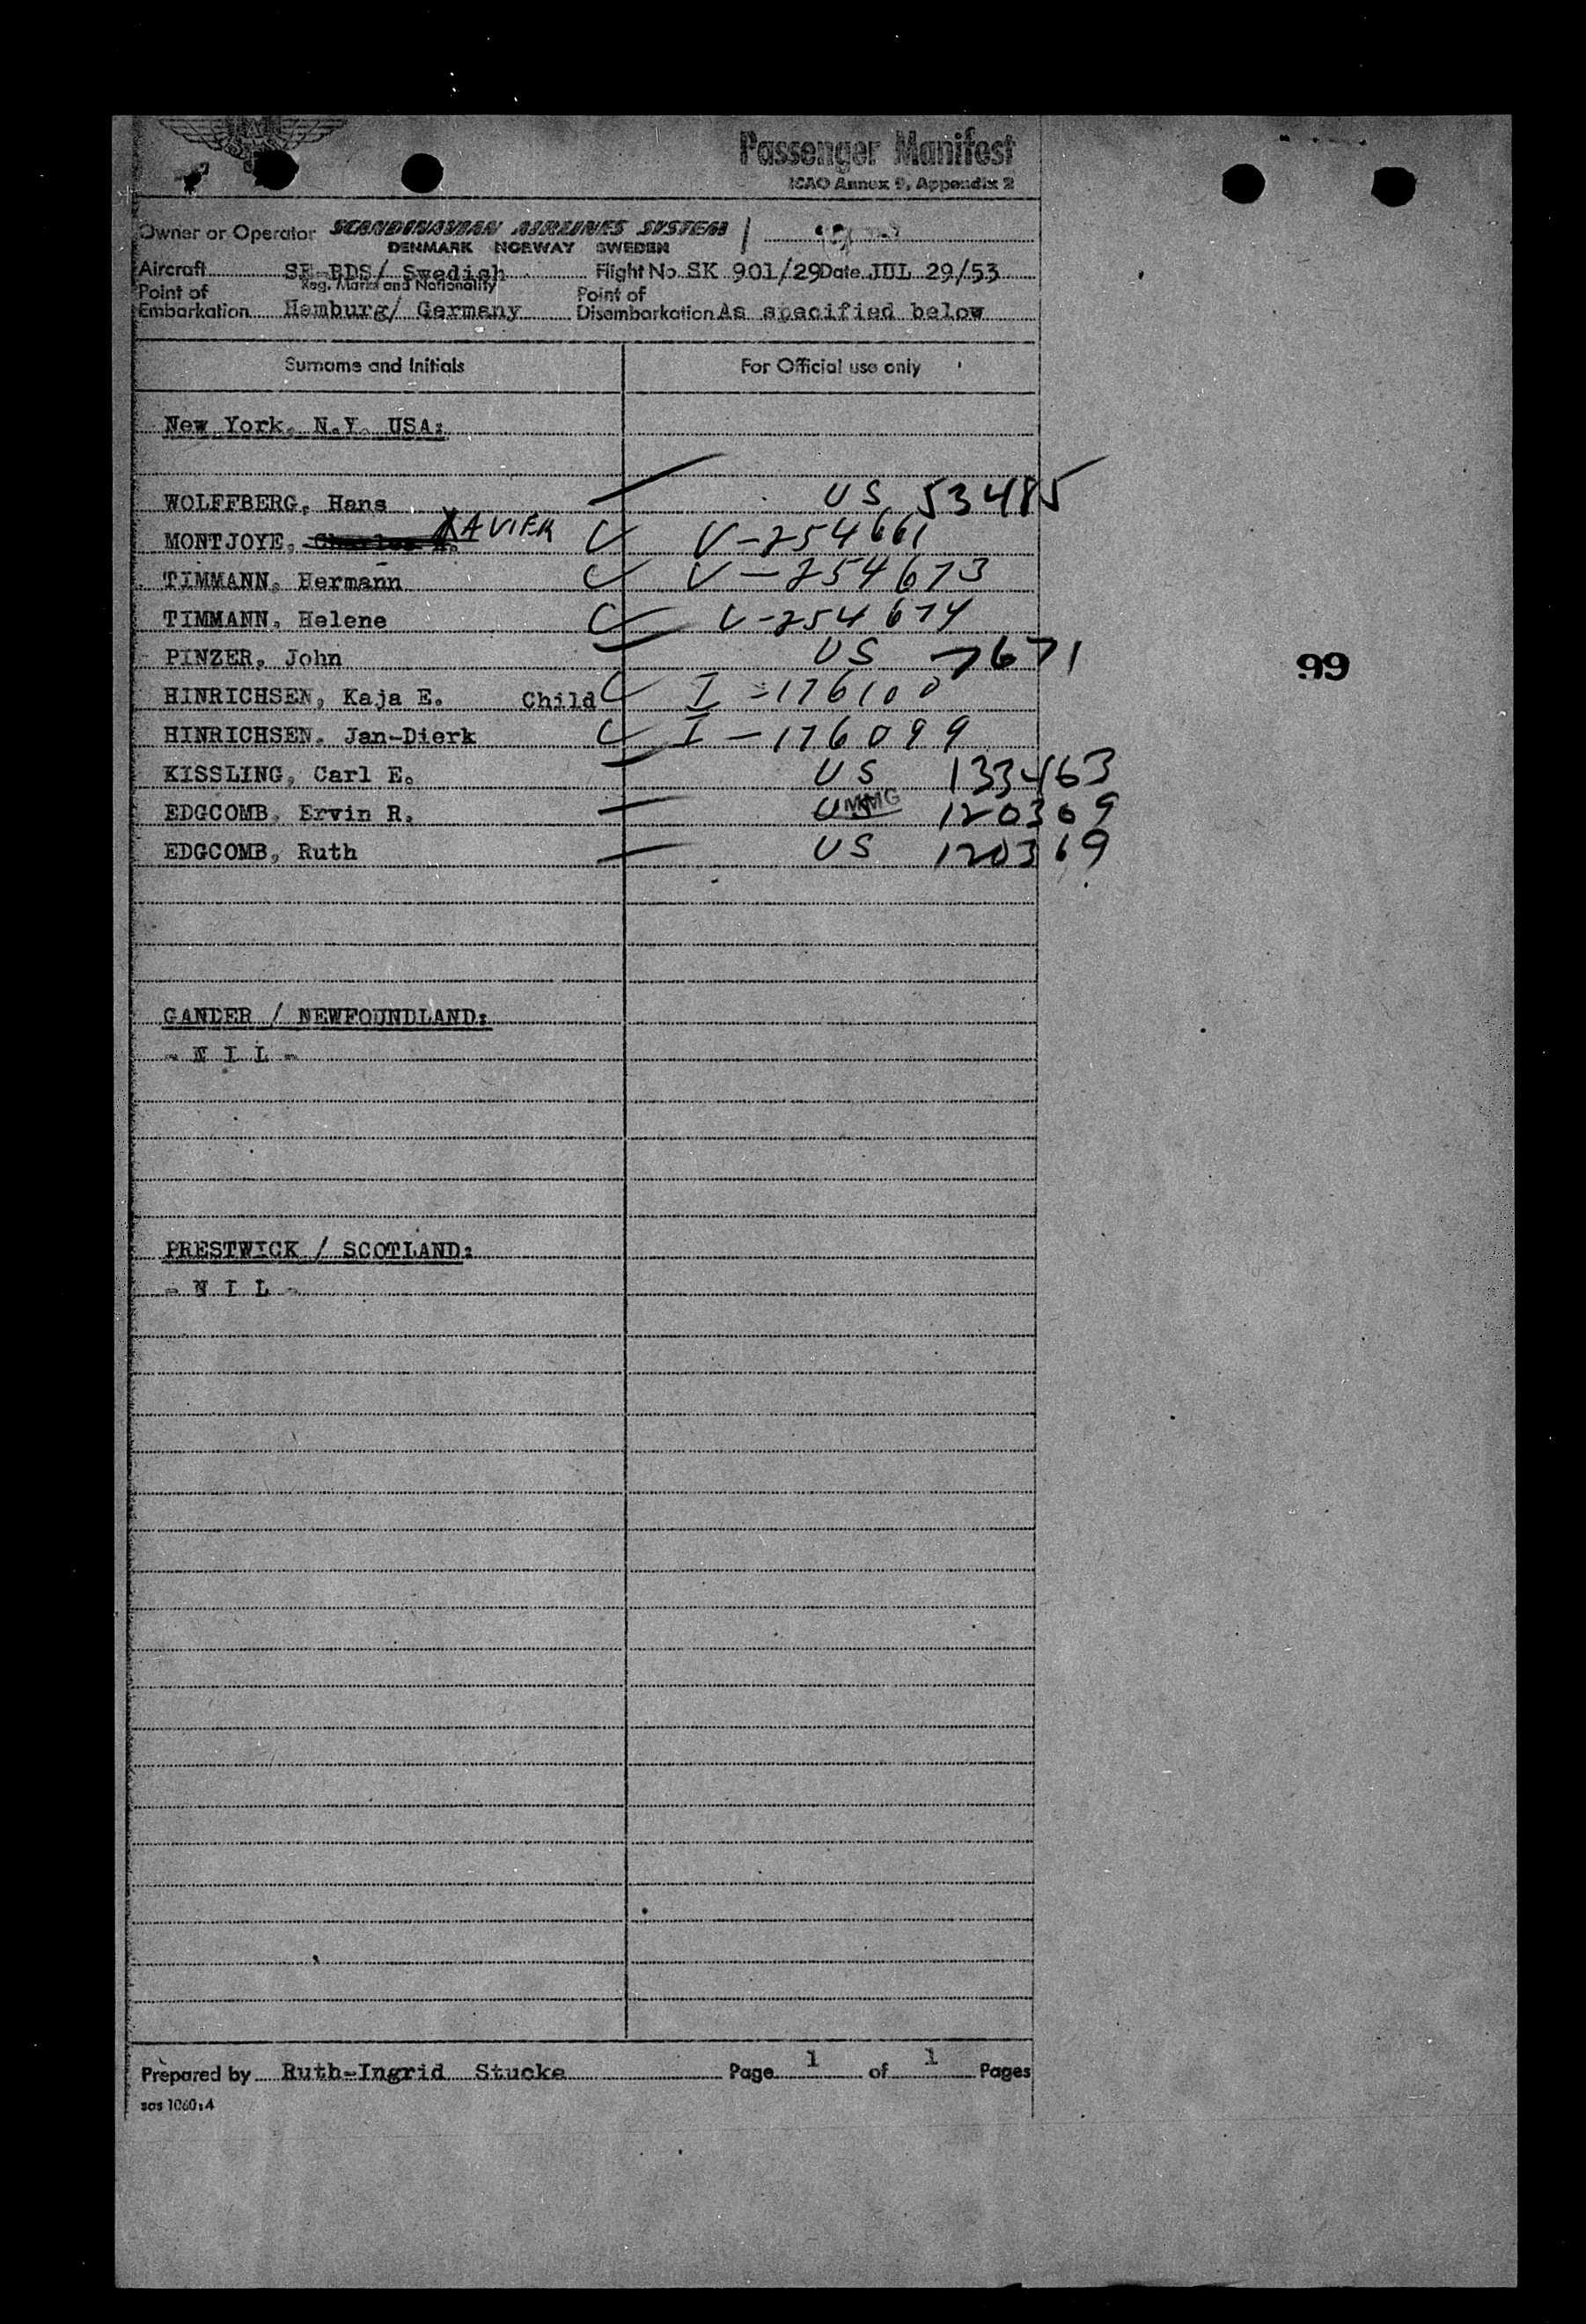 Passenger Manifest
ICAO Annex 9, Appendix 2
Owner or Operator SCANDINAVIAN AIRLINES SYSTEM
DENMARK NORWAY SWEDEN
Aircraft SE-BDS/ Swedish Flight No. SK 901/29 Date JUL 29/53
Reg. Marks and Nationality
Point of Embarkation Hamburg/ Germany Point of Disembarkation As specified below
Surname and Initials For Official use only
New York, N.Y. USA:
WOLFFBERG, Hans US 53485
MONTJOYE, XAVIER V-254661
TIMMANN, Hermann V-254673
TIMMANN, Helene V-254674
PINZER, John US 7671
99
HINRICHSEN, Kaja E. Child I-176100
HINRICHSEN, Jan-Dierk I-176099
KISSLING, Carl E. US 133463
EDGCOMB, Ervin R. US MMG 120369
EDGCOMB, Ruth US 120369
GANDER / NEWFOUNDLAND:
- N I L -
PRESTWICK / SCOTLAND:
- N I L -
Prepared by Ruth-Ingrid Stucke Page 1 of 1 Pages
sas 1060:4